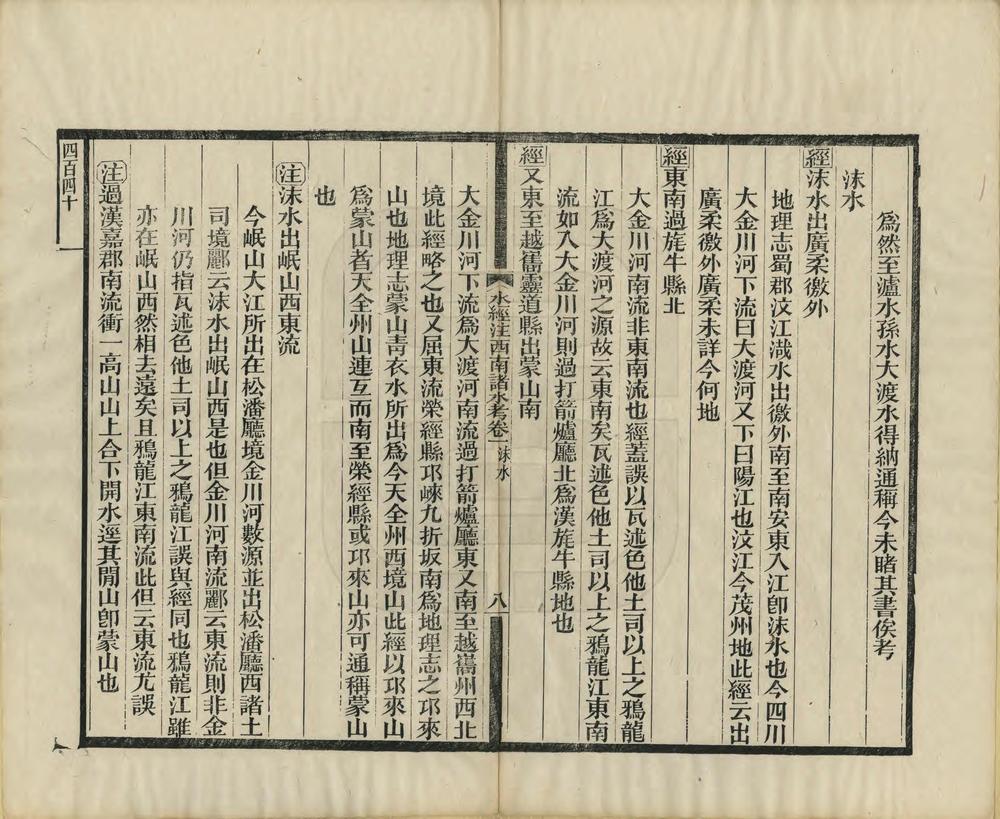 爲然至瀘水孫水大渡水得納通稱今未睹其書俟考
沫水
經沫水出廣柔徼外
地理志蜀郡汶江渽水出徼外南至南安東入江卽沫水也今四川
大金川河下流曰大渡河又下曰陽江也汶江今茂州地此經云出
廣柔徼外廣柔未詳今何地
經東南過旄牛縣北
大金川河南流非東南流也經蓋誤以瓦述色他土司以上之鴉龍
江爲大渡河之源故云東南矣瓦述色他土司以上之鴉龍江東南
流如入大金川河則過打箭爐廳北爲漢旄牛縣地也
經又東至越巂靈道縣出蒙山南
水經注西南諸水考卷一 沫水 八
大金川河下流爲大渡河南流過打箭爐廳東又南至越巂州西北
境此經略之也又屈東流榮經縣邛崍九折坂南爲地理志之邛來
山也地理志蒙山青衣水所出爲今天全州西境山此經以邛來山
爲蒙山者天全州山連互而南至榮經縣或邛來山亦可通稱蒙山
也
注沫水出岷山西東流
今岷山大江所出在松潘廳境金川河數源並出松潘廳西諸土
司境酈云沫水出岷山西是也但金川河南流酈云東流則非金
川河仍指瓦述色他土司以上之鴉龍江誤與經同也鴉龍江雖
亦在岷山西然相去遠矣且鴉龍江東南流此但云東流尤誤
注過漢嘉郡南流衝一高山山上合下開水逕其閒山卽蒙山也
四百四十